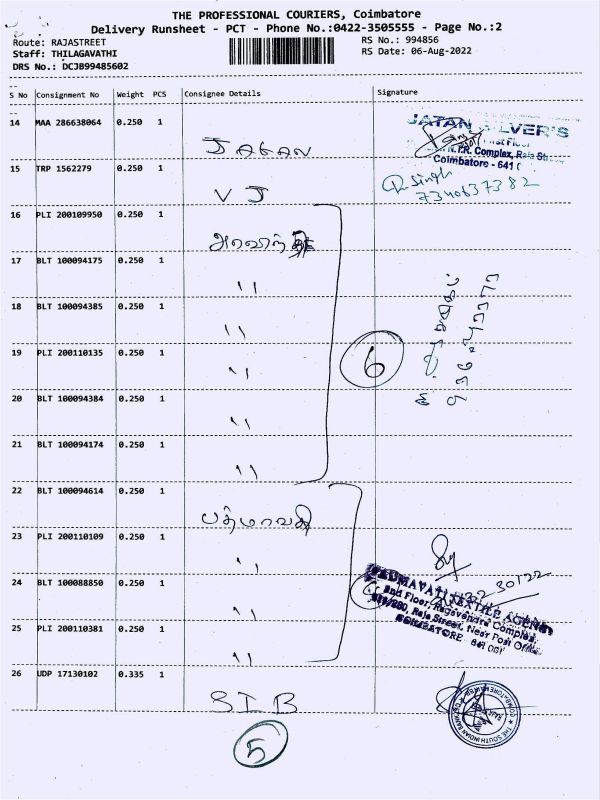 THE PROFESSIONAL COURIERS, Coimbatore
Delivery Runsheet - PCT - Phone No.:0422-3505555 - Page No.:2
Route: RAJASTREET
RS No.: 994856
Staff: THILAGAVATHI
RS Date: 06-Aug-2022
DRS No.: DCJB99485602
S No Consignment No Weight PCS Consignee Details Signature
14 MAA 286638064 0.250 1
JAGAN
JATAN SILVER'S
Complex, Raja
Coimbatore - 641
15 TRP 1562279 0.250 1
VJ
singh
7340637382
16 PLI 200109950 0.250 1
17 BLT 100094175 0.250 1
"
18 BLT 100094385 0.250 1
"
19 PLI 200110135 0.250 1
"
6
20 BLT 100094384 0.250 1
"
21 BLT 100094174 0.250 1
"
22 BLT 100094614 0.250 1
பத்மாவதி
23 PLI 200110109 0.250 1
"
24 BLT 100088850 0.250 1
"
PADMAVATI TEXTILE AGENCY
2nd Floor, Ragavendra Complex,
Raja Street, Near Post Office,
COIMBATORE 641 001
25 PLI 200110381 0.250 1
"
26 UDP 17130102 0.335 1
SIB
THE SOUTH INDIAN BANK
5